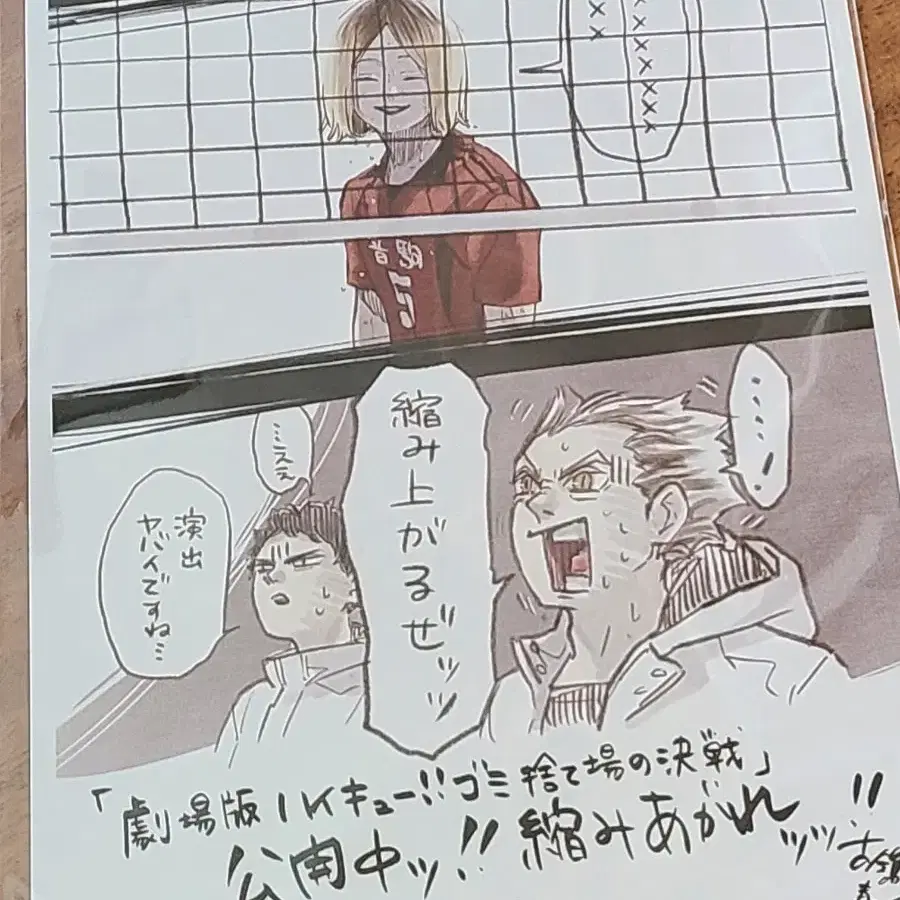 ×××××××
××
音駒
5
・・・・・!
縮み上がるぜッッ
……ええ
演出
ヤバイですね…
「劇場版ハイキュー!!ゴミ捨て場の決戦」
公開中ッ!!縮みあがれッッ!!